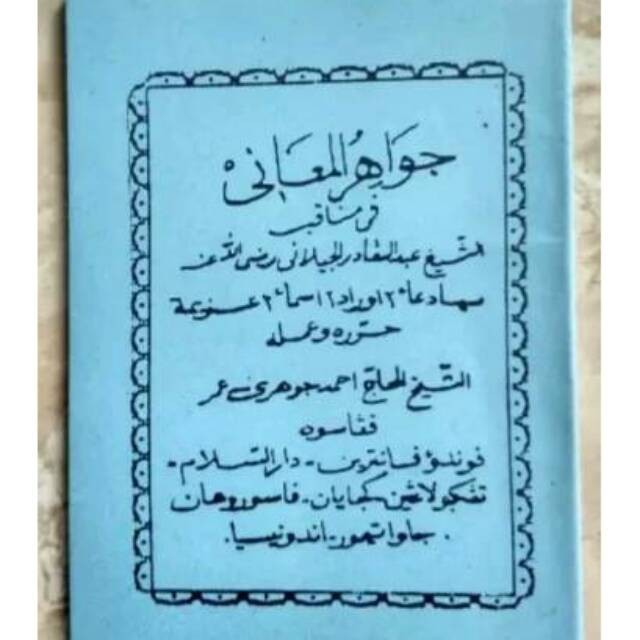 جَوَاهِرُ المَعَانِى
فى مناقب
الشّيخ عبد القادر الجيلانى رضى الله عنه
سهادعا٢ اوراد٢ اسما٢ عزيمة
حرّره وعمله
الشّيخ الحاج احمد جوهرى عمر
فڠاسوه
فوندؤ فسانترين - دار السّلام -
تڠكولاڠين كجايان - فاسوروهان
جاوا تيمور - اندونيسيا .